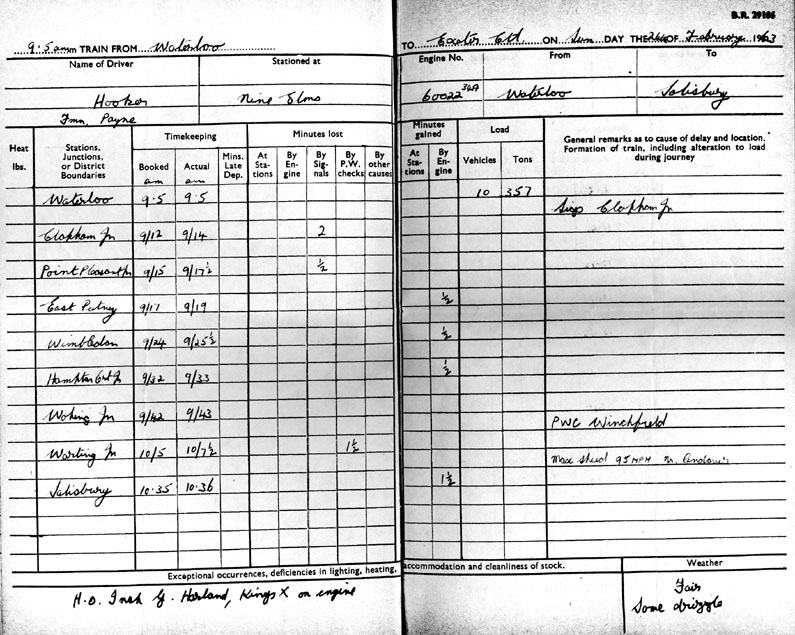 B.R. 29106
9·5 am TRAIN FROM Waterloo TO Exeter Ctl ON Sun DAY THE 24 OF February 1963
Name of Driver Stationed at Engine No. From To
Hooker Nine Elms 60022 34A Waterloo Salisbury
Fmn, Payne
Heat lbs. Stations, Junctions, or District Boundaries Timekeeping Minutes lost Minutes gained Load General remarks as to cause of delay and location. Formation of train, including alteration to load during journey
Booked Actual Mins. Late Dep. At Stations By Engine By Signals By P.W. checks By other causes At Stations By Engine Vehicles Tons
am am
Waterloo 9·5 9·5 10 357
Sigs Clapham Jn
Clapham Jn 9/12 9/14 2
Point Pleasant Jn 9/15 9/17½ ½
East Putney 9/17 9/19 ½
Wimbledon 9/24 9/25½ ½
Hampton Ct Jn 9/32 9/33 ½
Woking Jn 9/42 9/43
PWC Winchfield
Worting Jn 10/5 10/7½ 1½
Max Speed 95 MPH Nr. Andover
Salisbury 10·35 10·36 1½
Exceptional occurrences, deficiencies in lighting, heating, accommodation and cleanliness of stock. Weather
H.O. Insp G. Harland, Kings X on engine Fair
Some drizzle